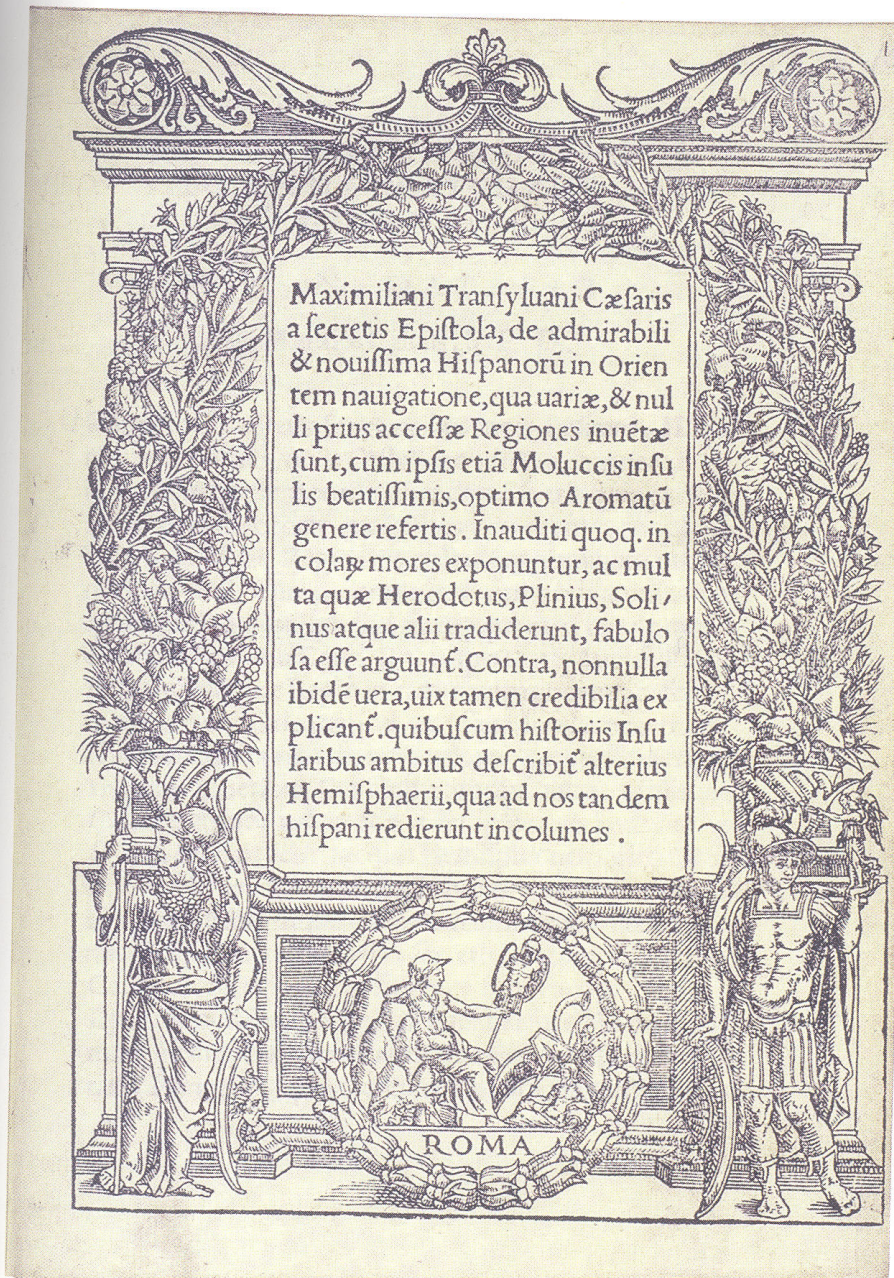 Maximiliani Tranſyluani Cæſaris
a ſecretis Epiſtola, de admirabili
& nouiſſima Hiſpanorū in Orien
tem nauigatione, qua uariæ, & nul
li prius acceſſæ Regiones inuētæ
ſunt, cum ipſis etiā Moluccis inſu
lis beatiſſimis, optimo Aromatū
genere refertis. Inauditi quoq. in
colaꝝ mores exponuntur, ac mul
ta quæ Herodotus, Plinius, Soli⸗
nus atque alii tradiderunt, fabulo
ſa eſſe arguunt᷑. Contra, nonnulla
ibidē uera, uix tamen credibilia ex
plicant᷑. quibuſcum hiſtoriis Inſu
laribus ambitus deſcribit᷑ alterius
Hemiſphaerii, qua ad nos tandem
hiſpani redierunt incolumes.
ROMA
1